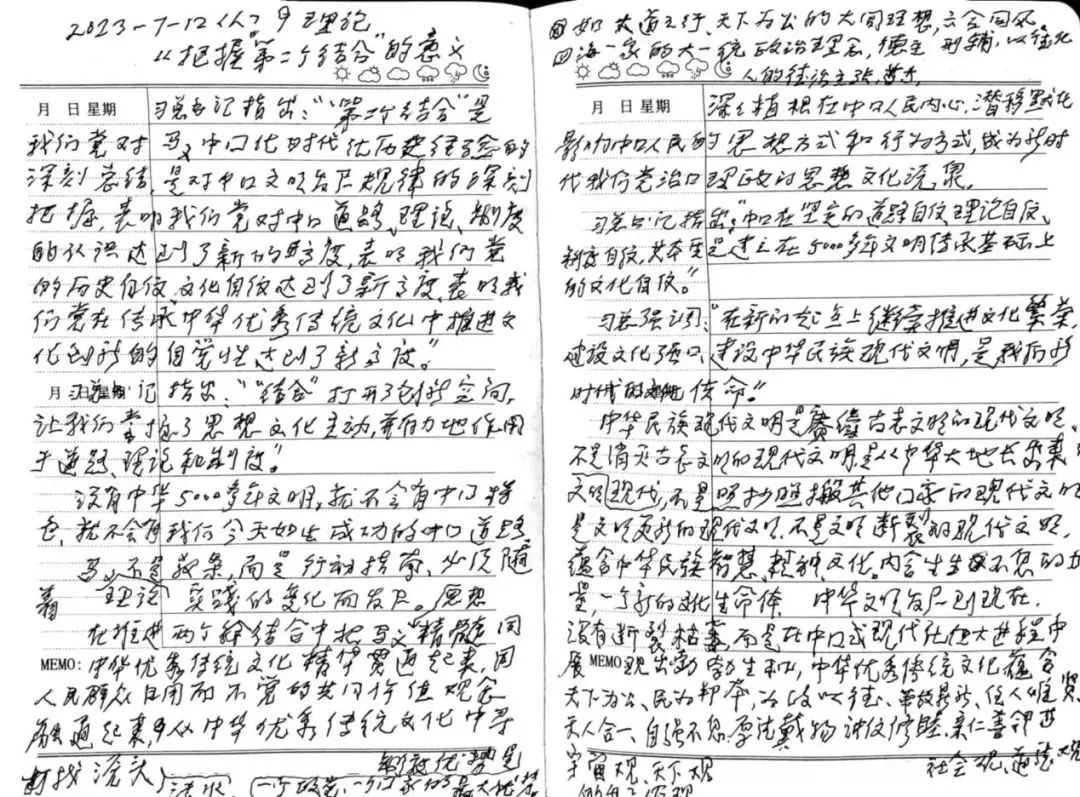 2023-7-12《人》9 理论
《把握"第二个结合"的意义
月 日 星期
习总书记指出:"'第二个结合'是
我们党对马义中国化时代化历史经验的
深刻总结,是对中口文明发展规律的深刻
把握,表明我们党对中口道路、理论、制度
的认识达到了新的高度,表明我们党
的历史自信、文化自信达到了新高度,表明我
们党在传承中华优秀传统文化中推进文
化创新的自觉性达到了新高度。"
月 日 星期 习总书记指出:"'结合'打开了创新空间,
让我们掌握了思想文化主动,并有力地作用
于道路、理论和制度。"
没有中华5000多年文明,就不会有中口特
色,就不会有我们今天如此成功的中口道路。
马义不是教条,而是行动指南,必须随
着实践的变化而发展。
理论 思想
在推进两个结合中把马义精髓同
MEMO: 中华优秀传统文化精华贯通起来,同
人民群众日用而不觉的共同价值观念
融通起来,从中华优秀传统文化中寻
找源头
活水。
制度优势是
一个政党、一个国家的最大优势
如大道之行、天下为公的大同理想,六合同风、
四海一家的大一统政治理念,德主刑辅,以德化
人的德治主张,等等
月 日 星期
深深植根在中口人民内心,潜移默化
影响中口人民的思想方式和行为方式,成为新时
代我们党治口理政的思想文化资源。
习总书记指出:"中口在坚定的道路自信、理论自信、
制度自信,其本质是建立在5000多年文明传承基础上
的文化自信。"
习总强调:"在新的起点上继续推进文化繁荣,
建设文化强口、建设中华民族现代文明,是我们新
时代的文化使命。"
中华民族现代文明是赓续古老文明的现代文明,
不是消灭古老文明的现代文明,是从中华大地长出来
文明现代,不是照抄照搬其他口家的现代文明
是文明更新的现代文明,不是文明断裂的现代文明。
蕴含中华民族智慧、精神、文化。内含生生不息的力
量,一个新的文化生命体。中华文明发展到现在,
没有断裂枯萎,而是在中口式现代化恒大进程中
展
MEMO: 现出勃勃生机,中华优秀传统文化蕴含
天下为公、民为邦本、为政以德、革故鼎新、任人唯贤、
天人合一、自强不息、厚德载物、讲信修睦、亲仁善邻等
宇宙观、天下观
社会观、道德观